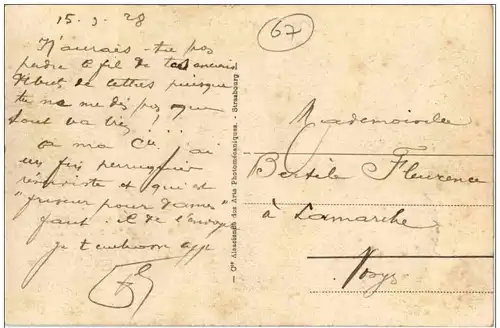 15. 3. 28
67
N'aurais-tu pas
perdre le fil de tes
de lettres puisque
tu ne me dis pas que
tout va très! ...
à ma Cie j'ai
un fin perruquier
réserviste et qui est
"friseur pour Dames"
faut-il de l'envoyer
je t'embrasse
— Cie Alsacienne des Arts Photomécaniques. - Strasbourg
Mademoiselle
Bertile Fleurence
à Lamarche
Vosges